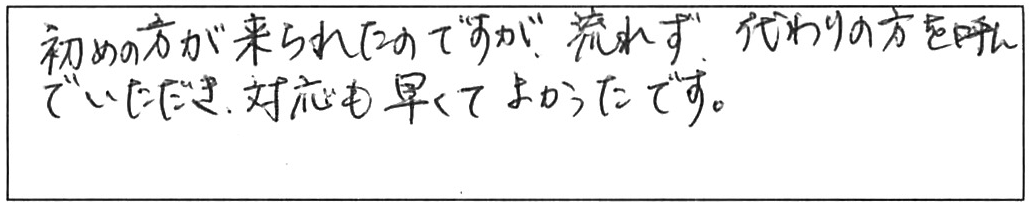 初めの方が来られたのですが、流れず、代わりの方を呼ん
でいただき、対応も早くてよかったです。